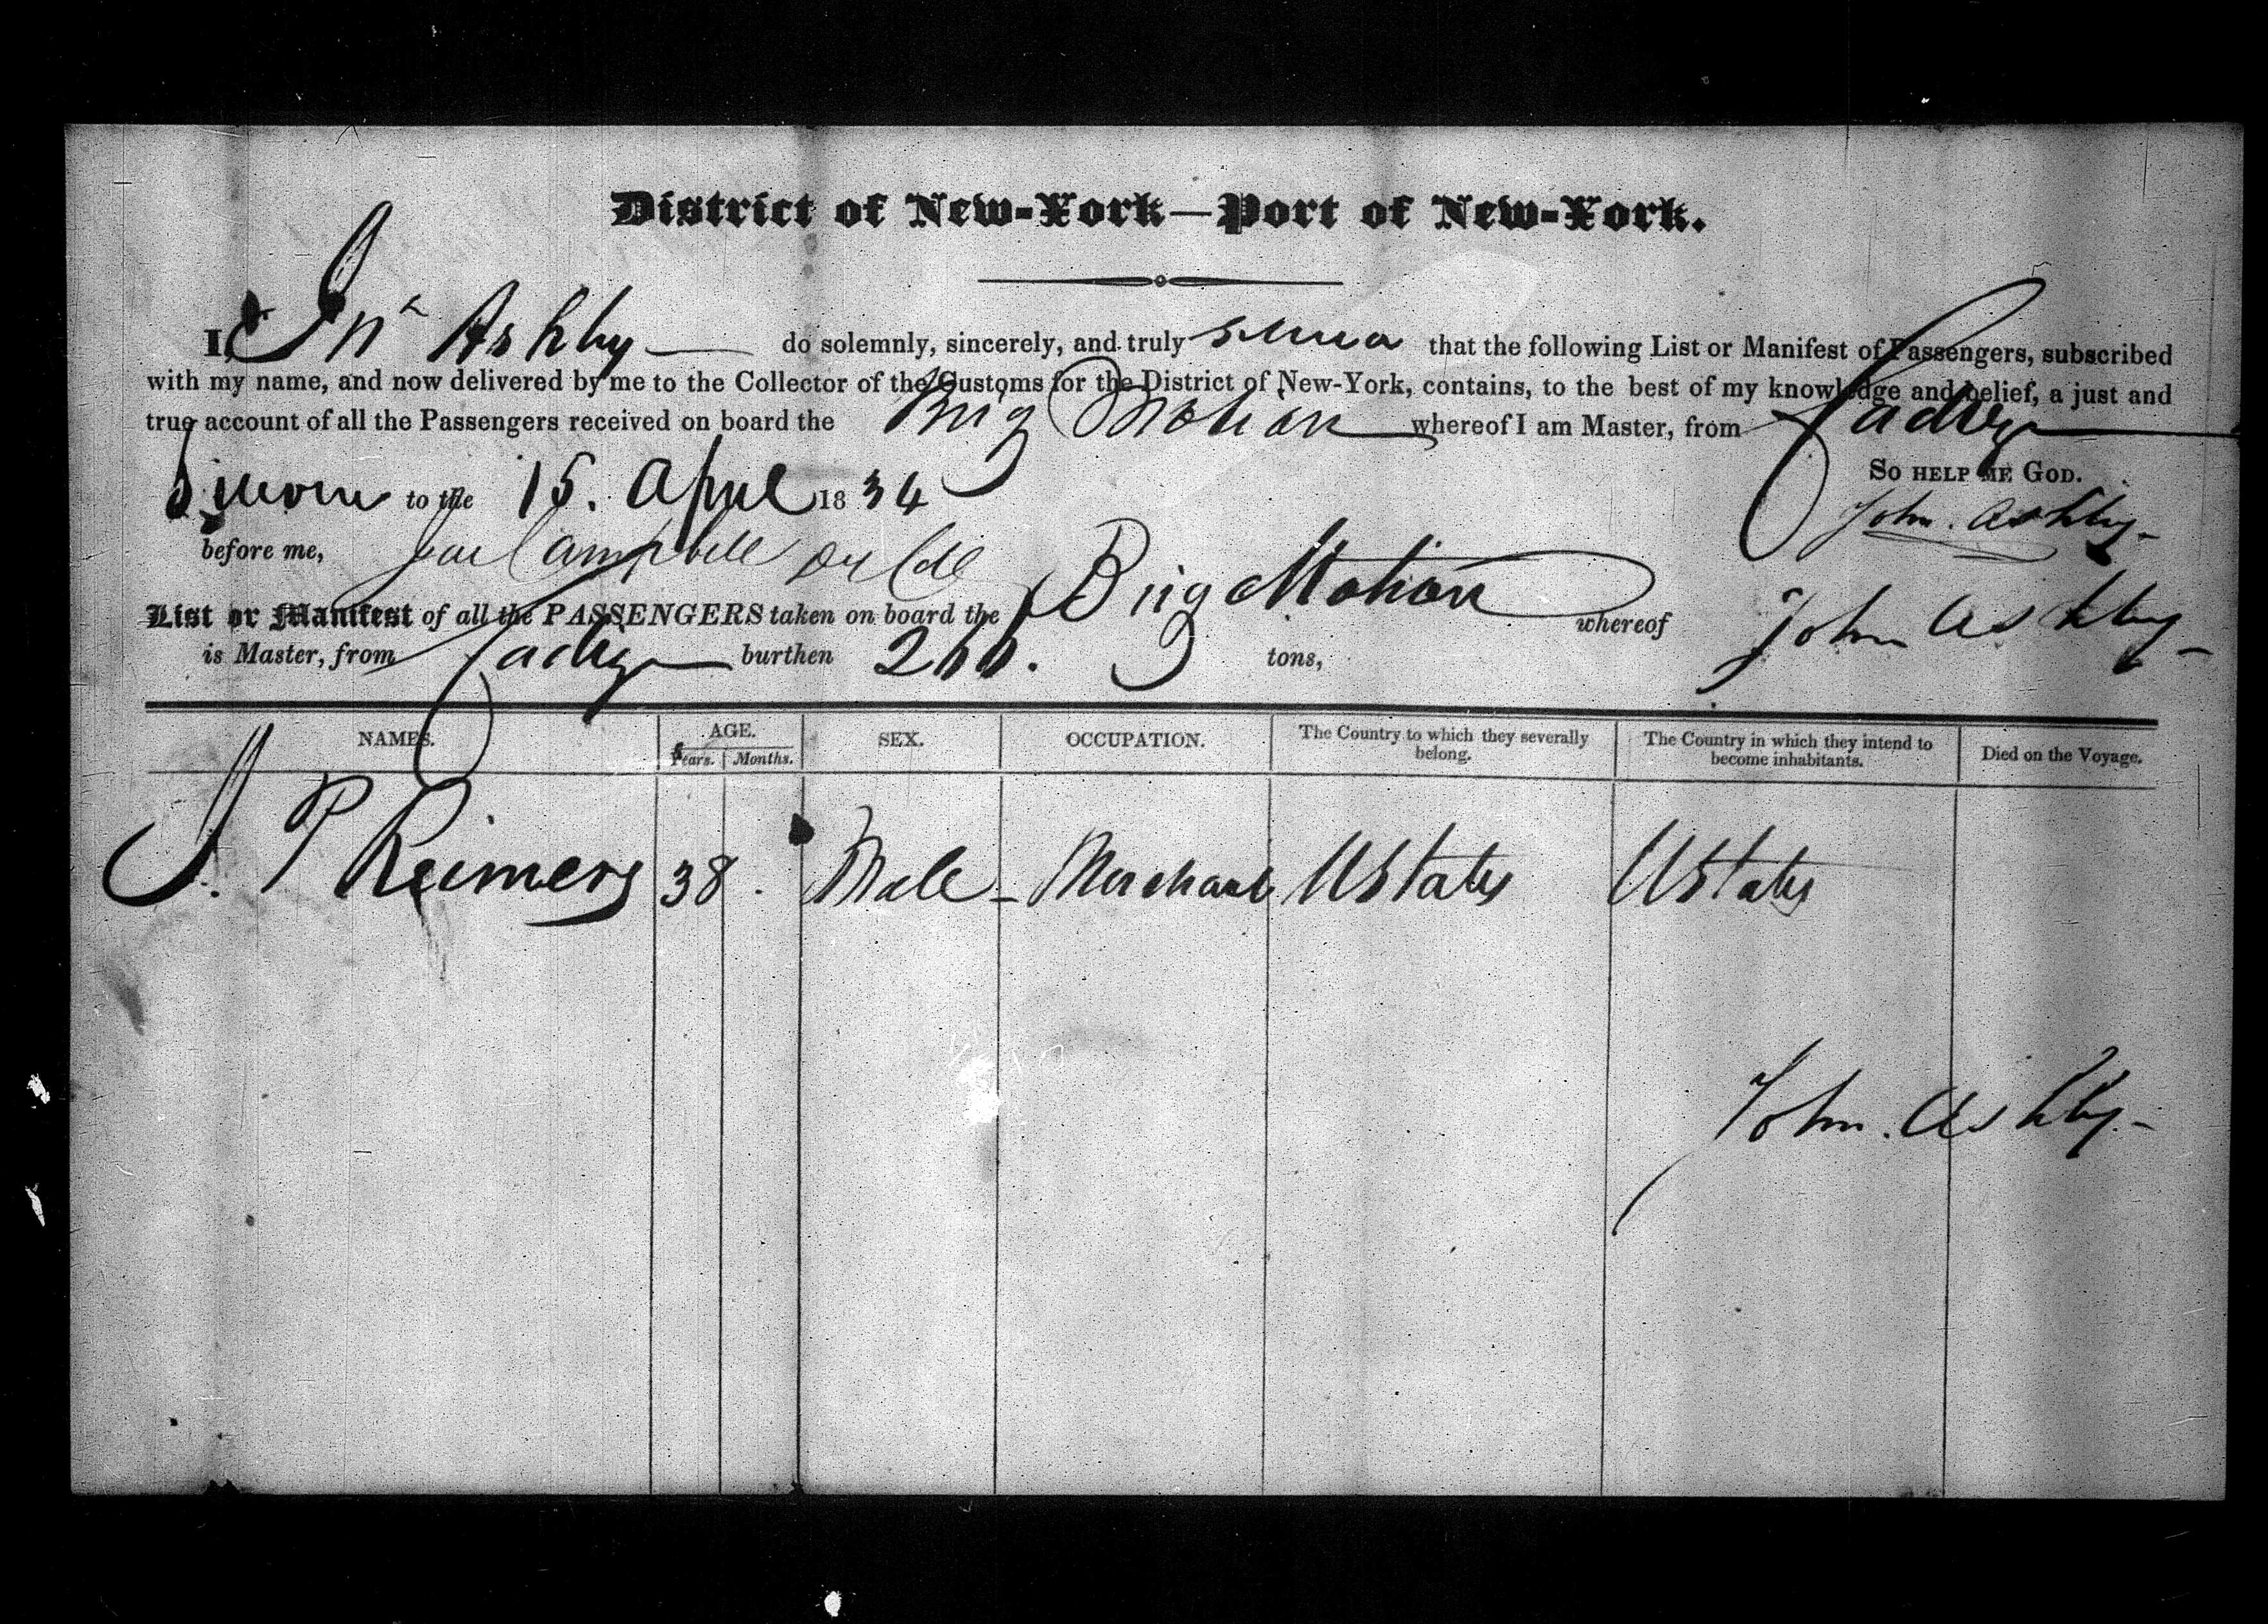 District of New-York—Port of New-York.
I, Jnº Ashby do solemnly, sincerely, and truly swear that the following List or Manifest of Passengers, subscribed
with my name, and now delivered by me to the Collector of the Customs for the District of New-York, contains, to the best of my knowledge and belief, a just and
true account of all the Passengers received on board the Brig Motion whereof I am Master, from Cadiz
So help me God.
Sworn to the 15. April 1834
John. Ashby
before me, Campbell
List or Manifest of all the PASSENGERS taken on board the Brig Motion whereof John Ashby
is Master, from Cadiz burthen 260. tons,
NAMES. AGE. SEX. OCCUPATION. The Country to which they severally belong. The Country in which they intend to become inhabitants. Died on the Voyage.
Years. Months.
J. P Reimers 38. Male Merchant UStates UStates
John. Ashby.